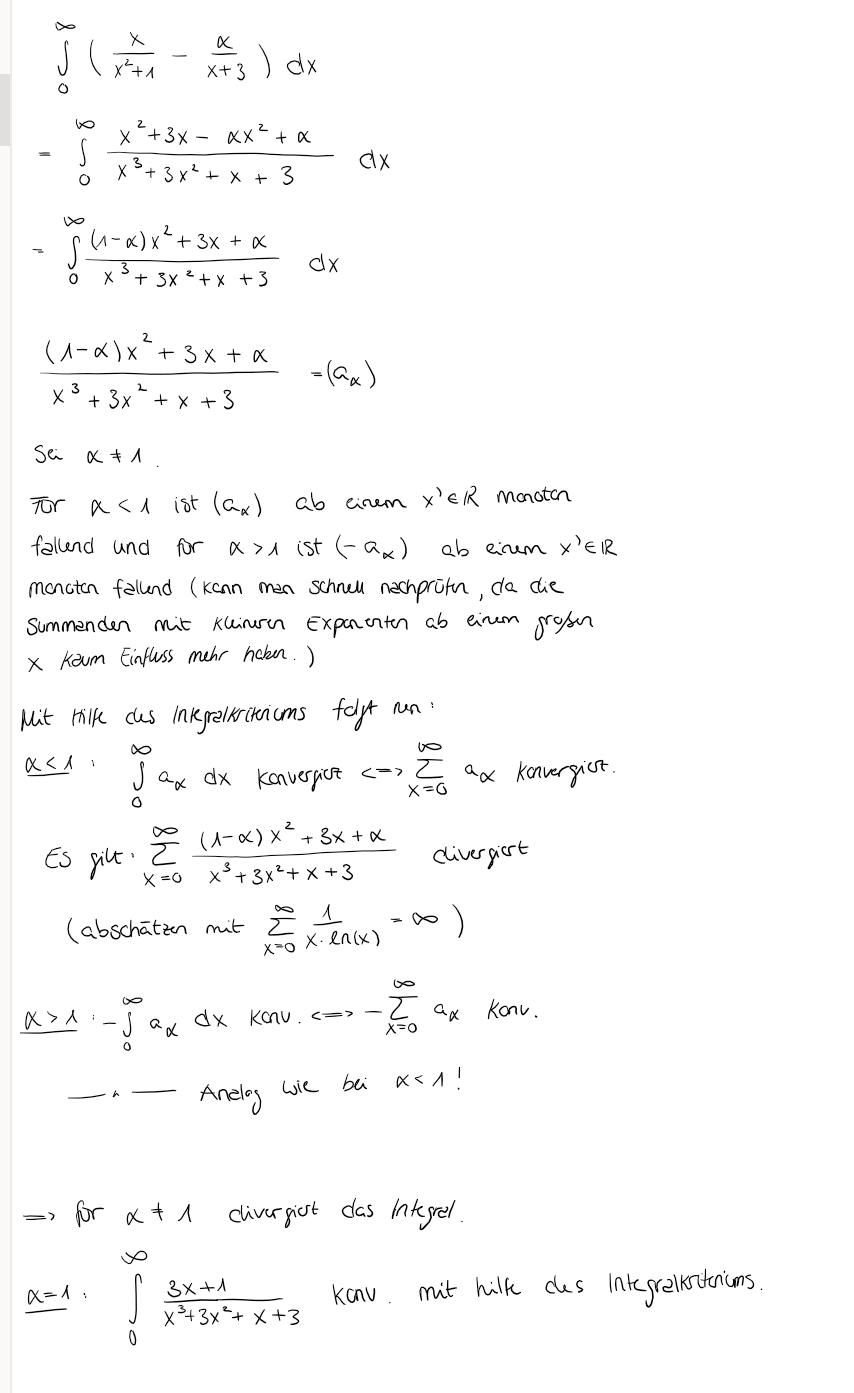 ∫_0^∞ ( x/(x²+1) − α/(x+3) ) dx
= ∫_0^∞ (x²+3x − αx² + α)/(x³+3x²+x+3) dx
= ∫_0^∞ ((1−α)x²+3x+α)/(x³+3x²+x+3) dx
((1−α)x²+3x+α)/(x³+3x²+x+3) = (a_α)
Sei α ≠ 1.
Für α < 1 ist (a_α) ab einem x' ∈ ℝ monoton
fallend und für α > 1 ist (−a_α) ab einem x' ∈ ℝ
monoton fallend (kann man schnell nachprüfen, da die
Summanden mit kleineren Exponenten ab einem großen
x kaum Einfluss mehr haben.)
Mit Hilfe des Integralkriteriums folgt nun:
α<1: ∫_0^∞ a_α dx konvergiert <=> ∑_{x=0}^∞ a_α konvergiert.
Es gilt: ∑_{x=0}^∞ ((1−α)x²+3x+α)/(x³+3x²+x+3) divergiert
(abschätzen mit ∑_{x=0}^∞ 1/(x·ln(x)) = ∞)
α>1: −∫_0^∞ a_α dx konv. <=> −∑_{x=0}^∞ a_α konv.
—— " —— Analog wie bei α<1!
=> für α ≠ 1 divergiert das Integral.
α=1: ∫_0^∞ (3x+1)/(x³+3x²+x+3) konv. mit hilfe des Integralkriteriums.